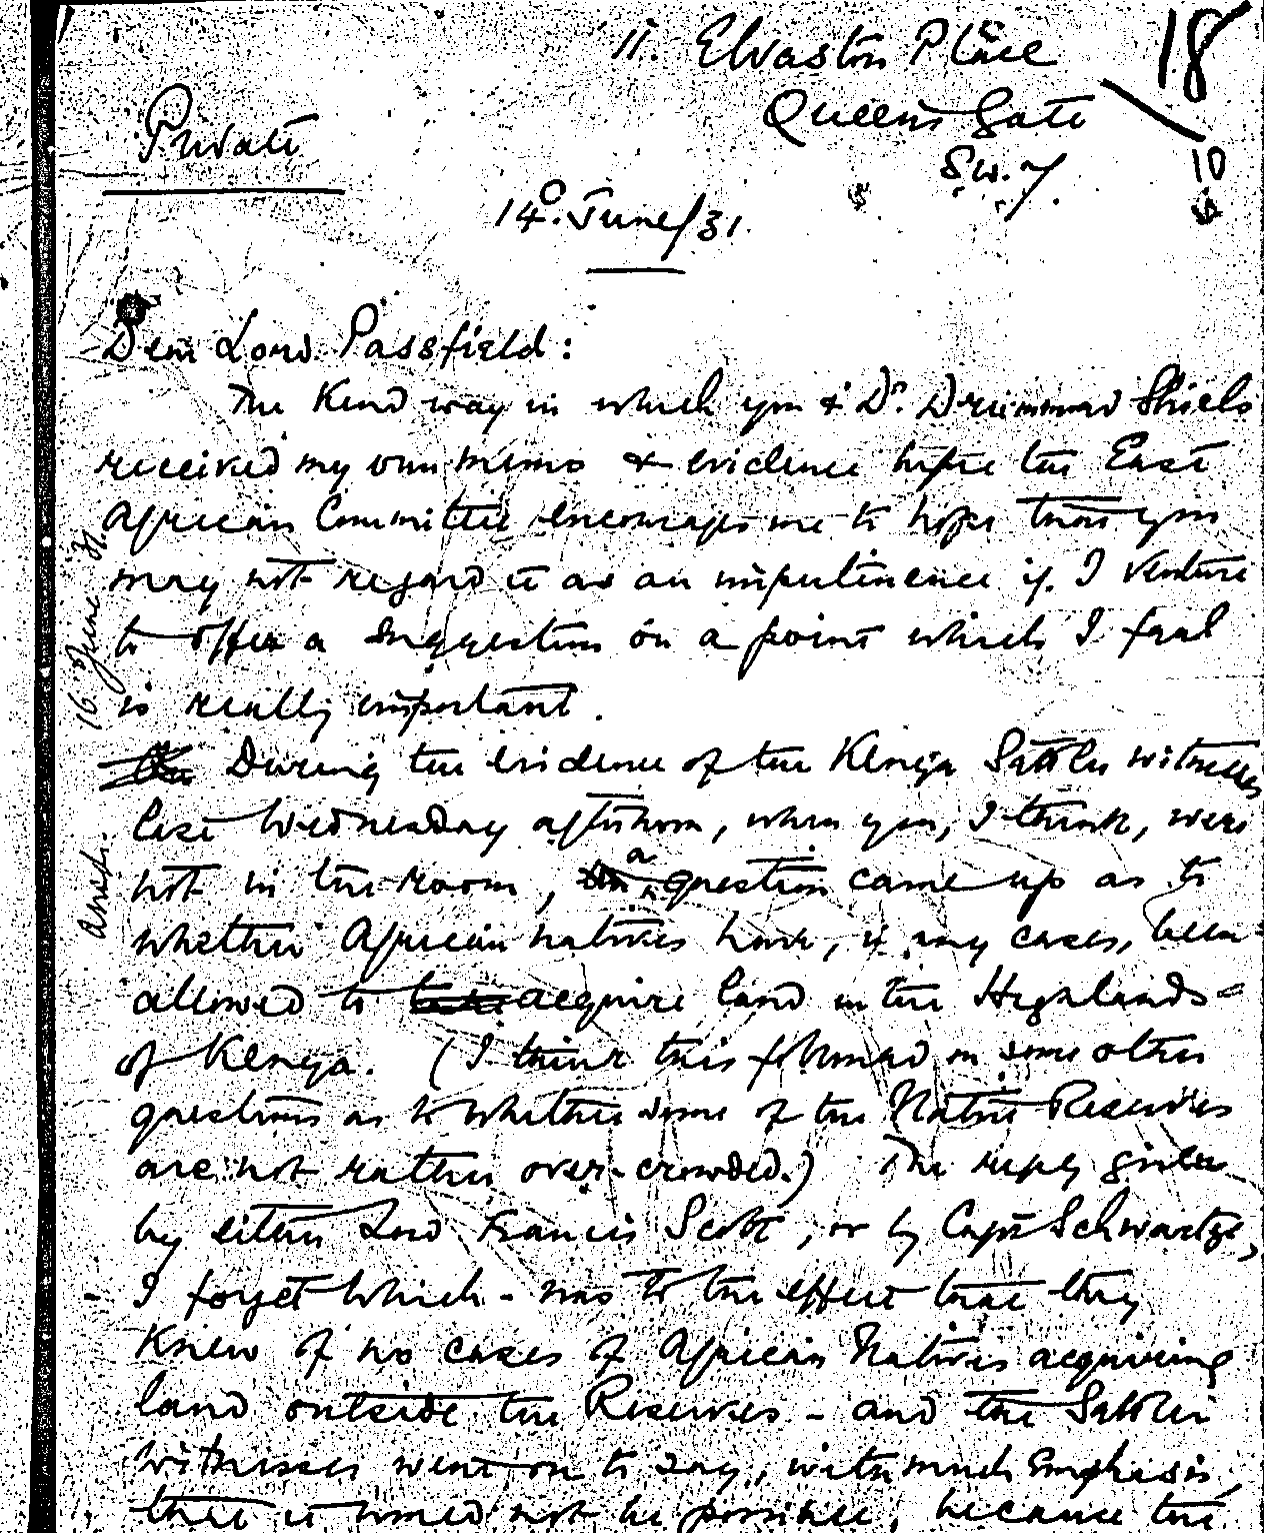 11. Elvaston Place
Queens Gate
S.W.7.
18
10
Private
14. June/31.
Dear Lord Passfield:
The kind way in which you & Dr. Drummond Shiels
received my own memo & evidence before the East
African Committee encourages me to hope that you
may not regard it as an impertinence if I venture
to offer a suggestion on a point which I feel
is really important.
During the evidence of the Kenya Settler witnesses
last Wednesday afternoon, when you, I think, were
not in the room, a question came up as to
whether African natives have, in any cases, been
allowed to acquire land in the Highlands
of Kenya. (I think this followed on some other
questions as to whether some of the Native Reserves
are not rather over-crowded.) The reply given
by either Lord Francis Scott, or by Capt Schwartze,
- I forget which - was to the effect that they
knew of no cases of African Natives acquiring
land outside the Reserves - and the Settler
witnesses went on to say, with much emphasis,
that it would not be possible, because the
16 June